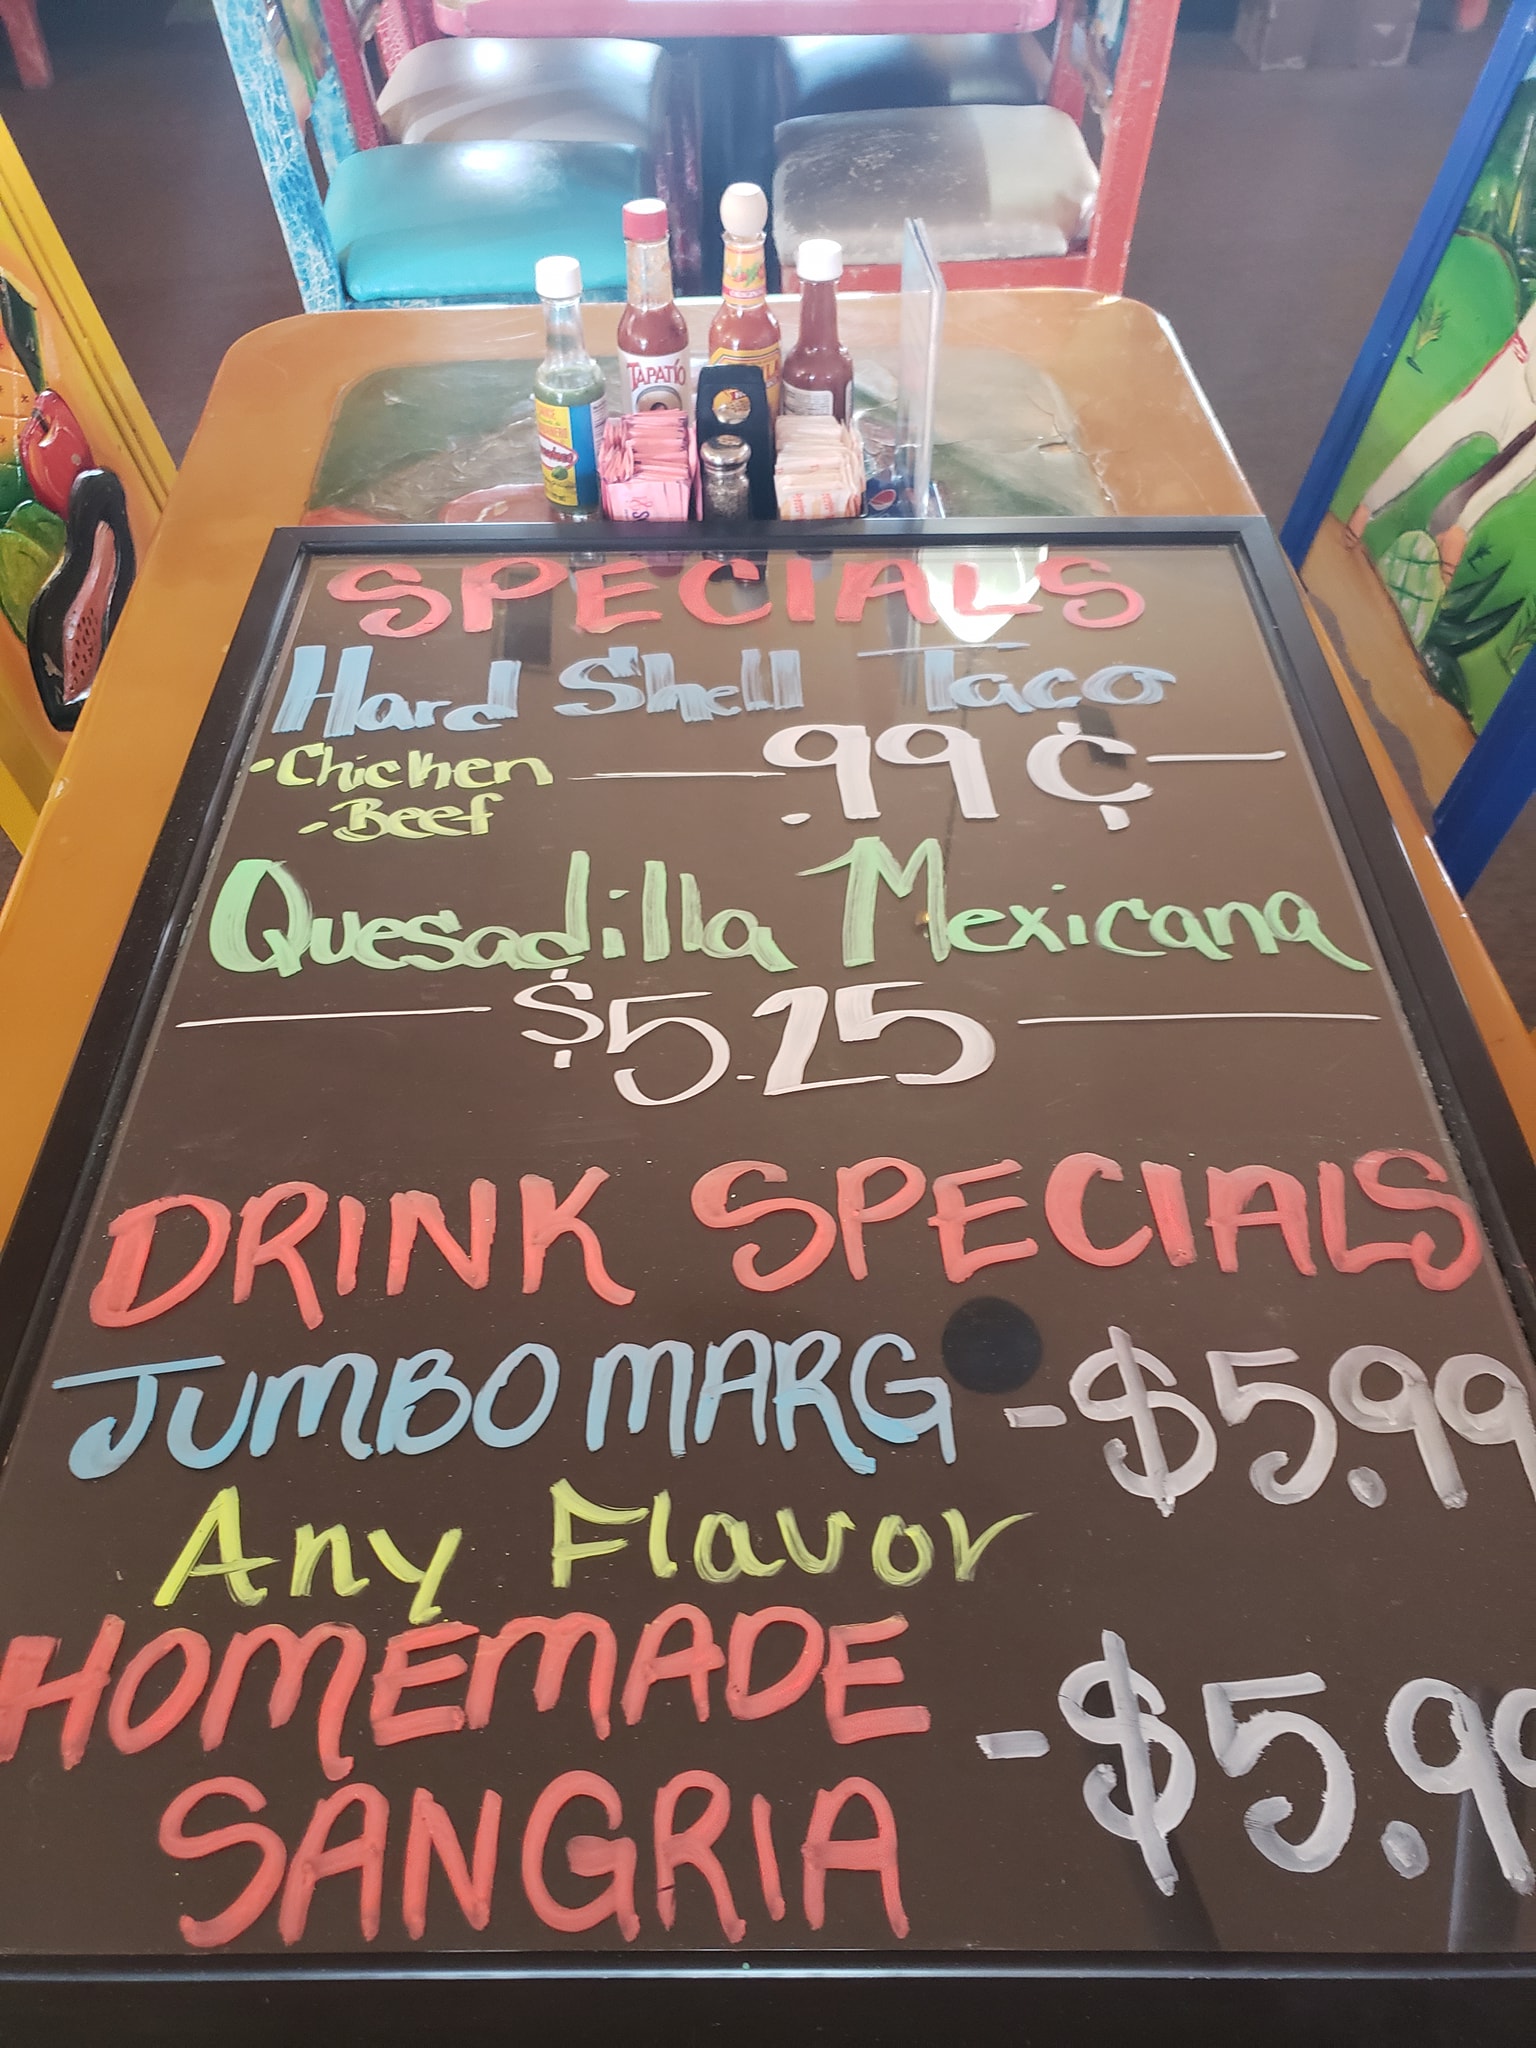 TAPATÍO
SPECIALS
Hard Shell Taco
·Chicken — .99 ¢ —
·Beef
Quesadilla Mexicana
— $5.25 —
DRINK SPECIALS
JUMBO MARG - $5.99
Any Flavor
HOMEMADE - $5.99
SANGRIA